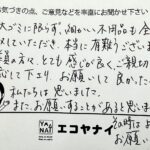 気づきの点、ご意見などを率直にお聞かせ下さい
大ごとに限らず、細かい不用品も全
していただき、本当に有難うございま
員の方々、とても感じが良く、ご親切
応して下さり、お願いして良かった
私たちは思いました。
また、お願いすることがあると思いま
その時はよ
お願い
YANAI
エコヤナイ